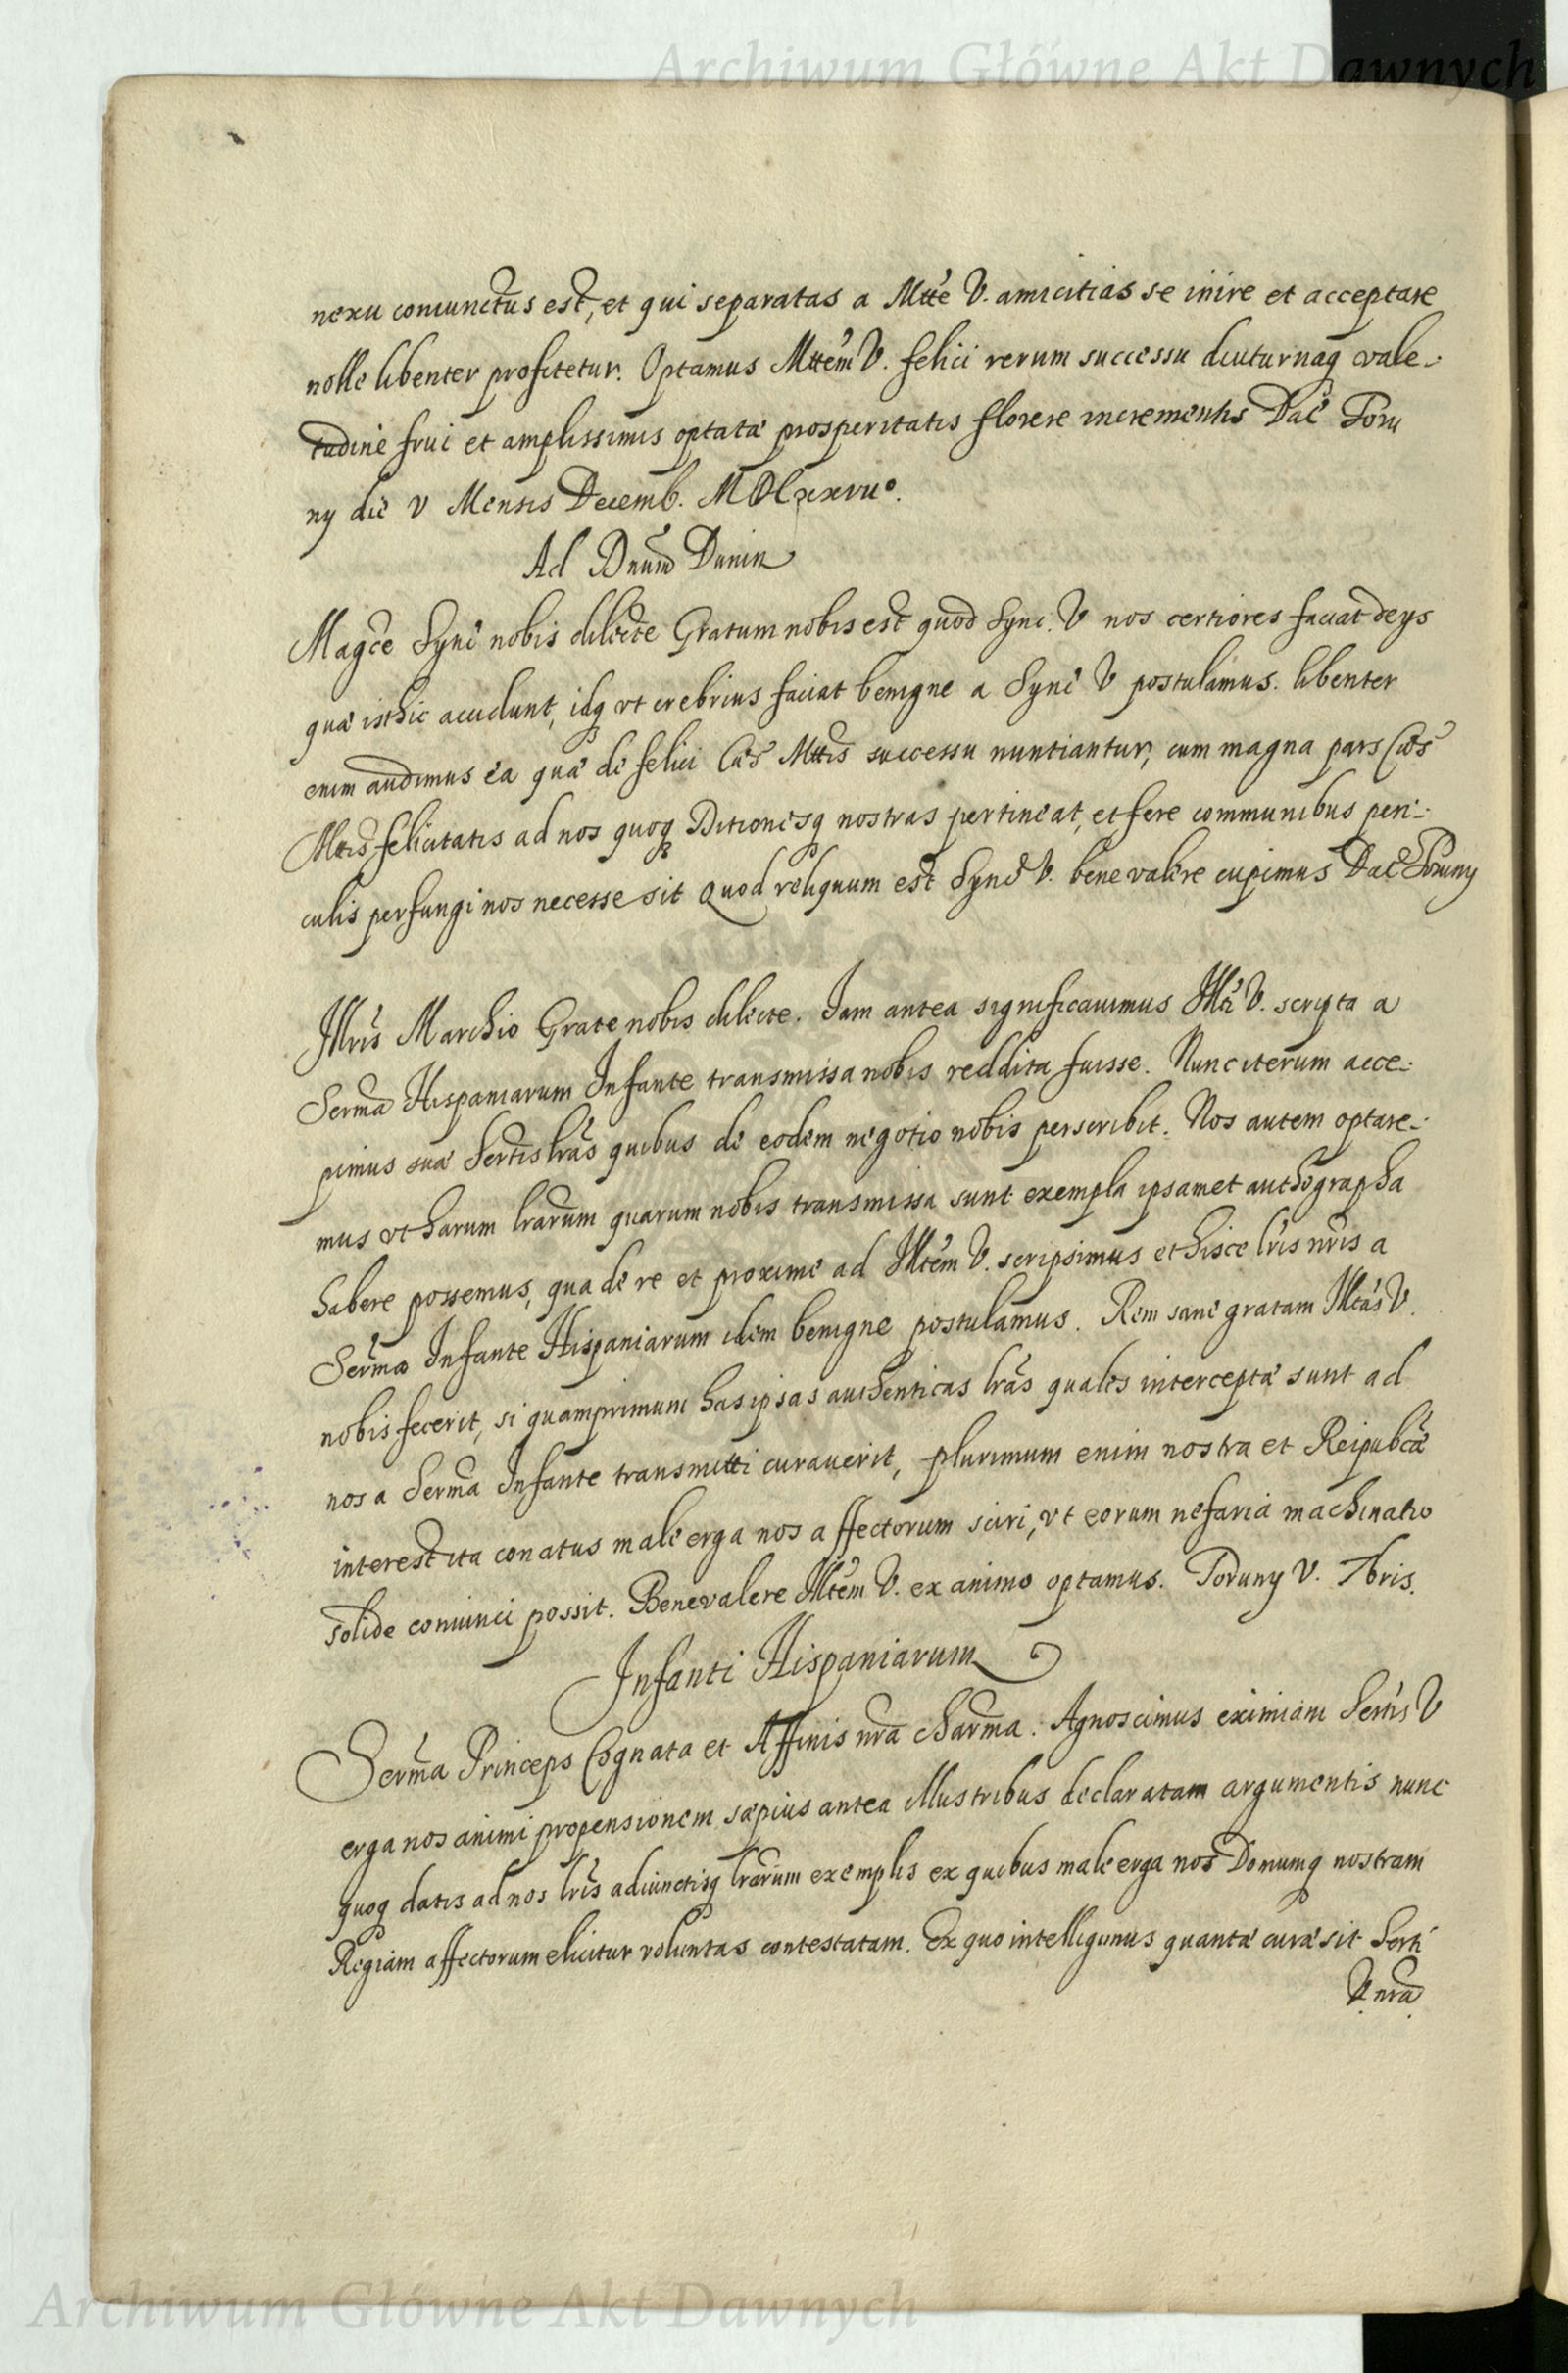 Archiwum Główne Akt Dawnych
nexu coniunctus est, et qui separatas a Mtte V. amicitias se inire et acceptare
nolle libenter profitetur. Optamus Mttem V. felici rerum successu diuturnaq vale-
tudine frui et amplissimis optatæ prosperitatis florere incrementis Dat Toru
ny die V Mensis Decemb. MDCxxvii°.
Ad Dnum Dunin
Magce Sync nobis dilecte Gratum nobis est quod Sync. V nos certiores faciat de ys
quæ isthic accidunt, idq vt crebrius faciat benigne a Sync V postulamus. libenter
enim audimus ea quæ de felici Cæs Mttis successu nuntiantur, cum magna pars Cæs
Mttis felicitatis ad nos quoq Ditionesq nostras pertineat, et fere communibus peri-
culis perfungi nos necesse sit Quod reliquum est Sync V. bene valere cupimus Dat Toruny
Illris Marchio Grate nobis dilecte. Iam antea significauimus Illti V. scripta a
Serma Hispaniarum Infante transmissa nobis reddita fuisse. Nunc iterum acce-
pimus suæ Sertis lras quibus de eodem negotio nobis perscribit. Nos autem optare-
mus vt harum lrarum quarum nobis transmissa sunt exempla ipsamet authographa
habere possemus, qua de re et proxime ad Illtem V. scripsimus et hisce lris nris a
Serma Infante Hispaniarum idem benigne postulamus. Rem sane gratam Illtas V.
nobis fecerit, si quamprimum has ipsas authenticas lras quales interceptæ sunt ad
nos a Serma Infante transmitti curauerit, plurimum enim nostra et Reipubcæ
interest ita conatus male erga nos affectorum sciri, vt eorum nefaria machinatio
solide conuinci possit. Bene valere Illtem V. ex animo optamus. Toruny V. Xbris.
Infanti Hispaniarum
Serma Princeps Cognata et Affinis nra charma. Agnoscimus eximiam Sertis V
erga nos animi propensionem sæpius antea illustribus declaratam argumentis nunc
quoq datis ad nos lris adiunctisq lrarum exemplis ex quibus male erga nos Domumq nostram
Regiam affectorum elicitur voluntas contestatam. Ex quo intelligimus quantæ curæ sit Serti
V. nra
Archiwum Główne Akt Dawnych